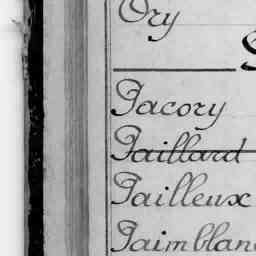 Ory
Pacory
Paillard
Pailleux
Paimblan